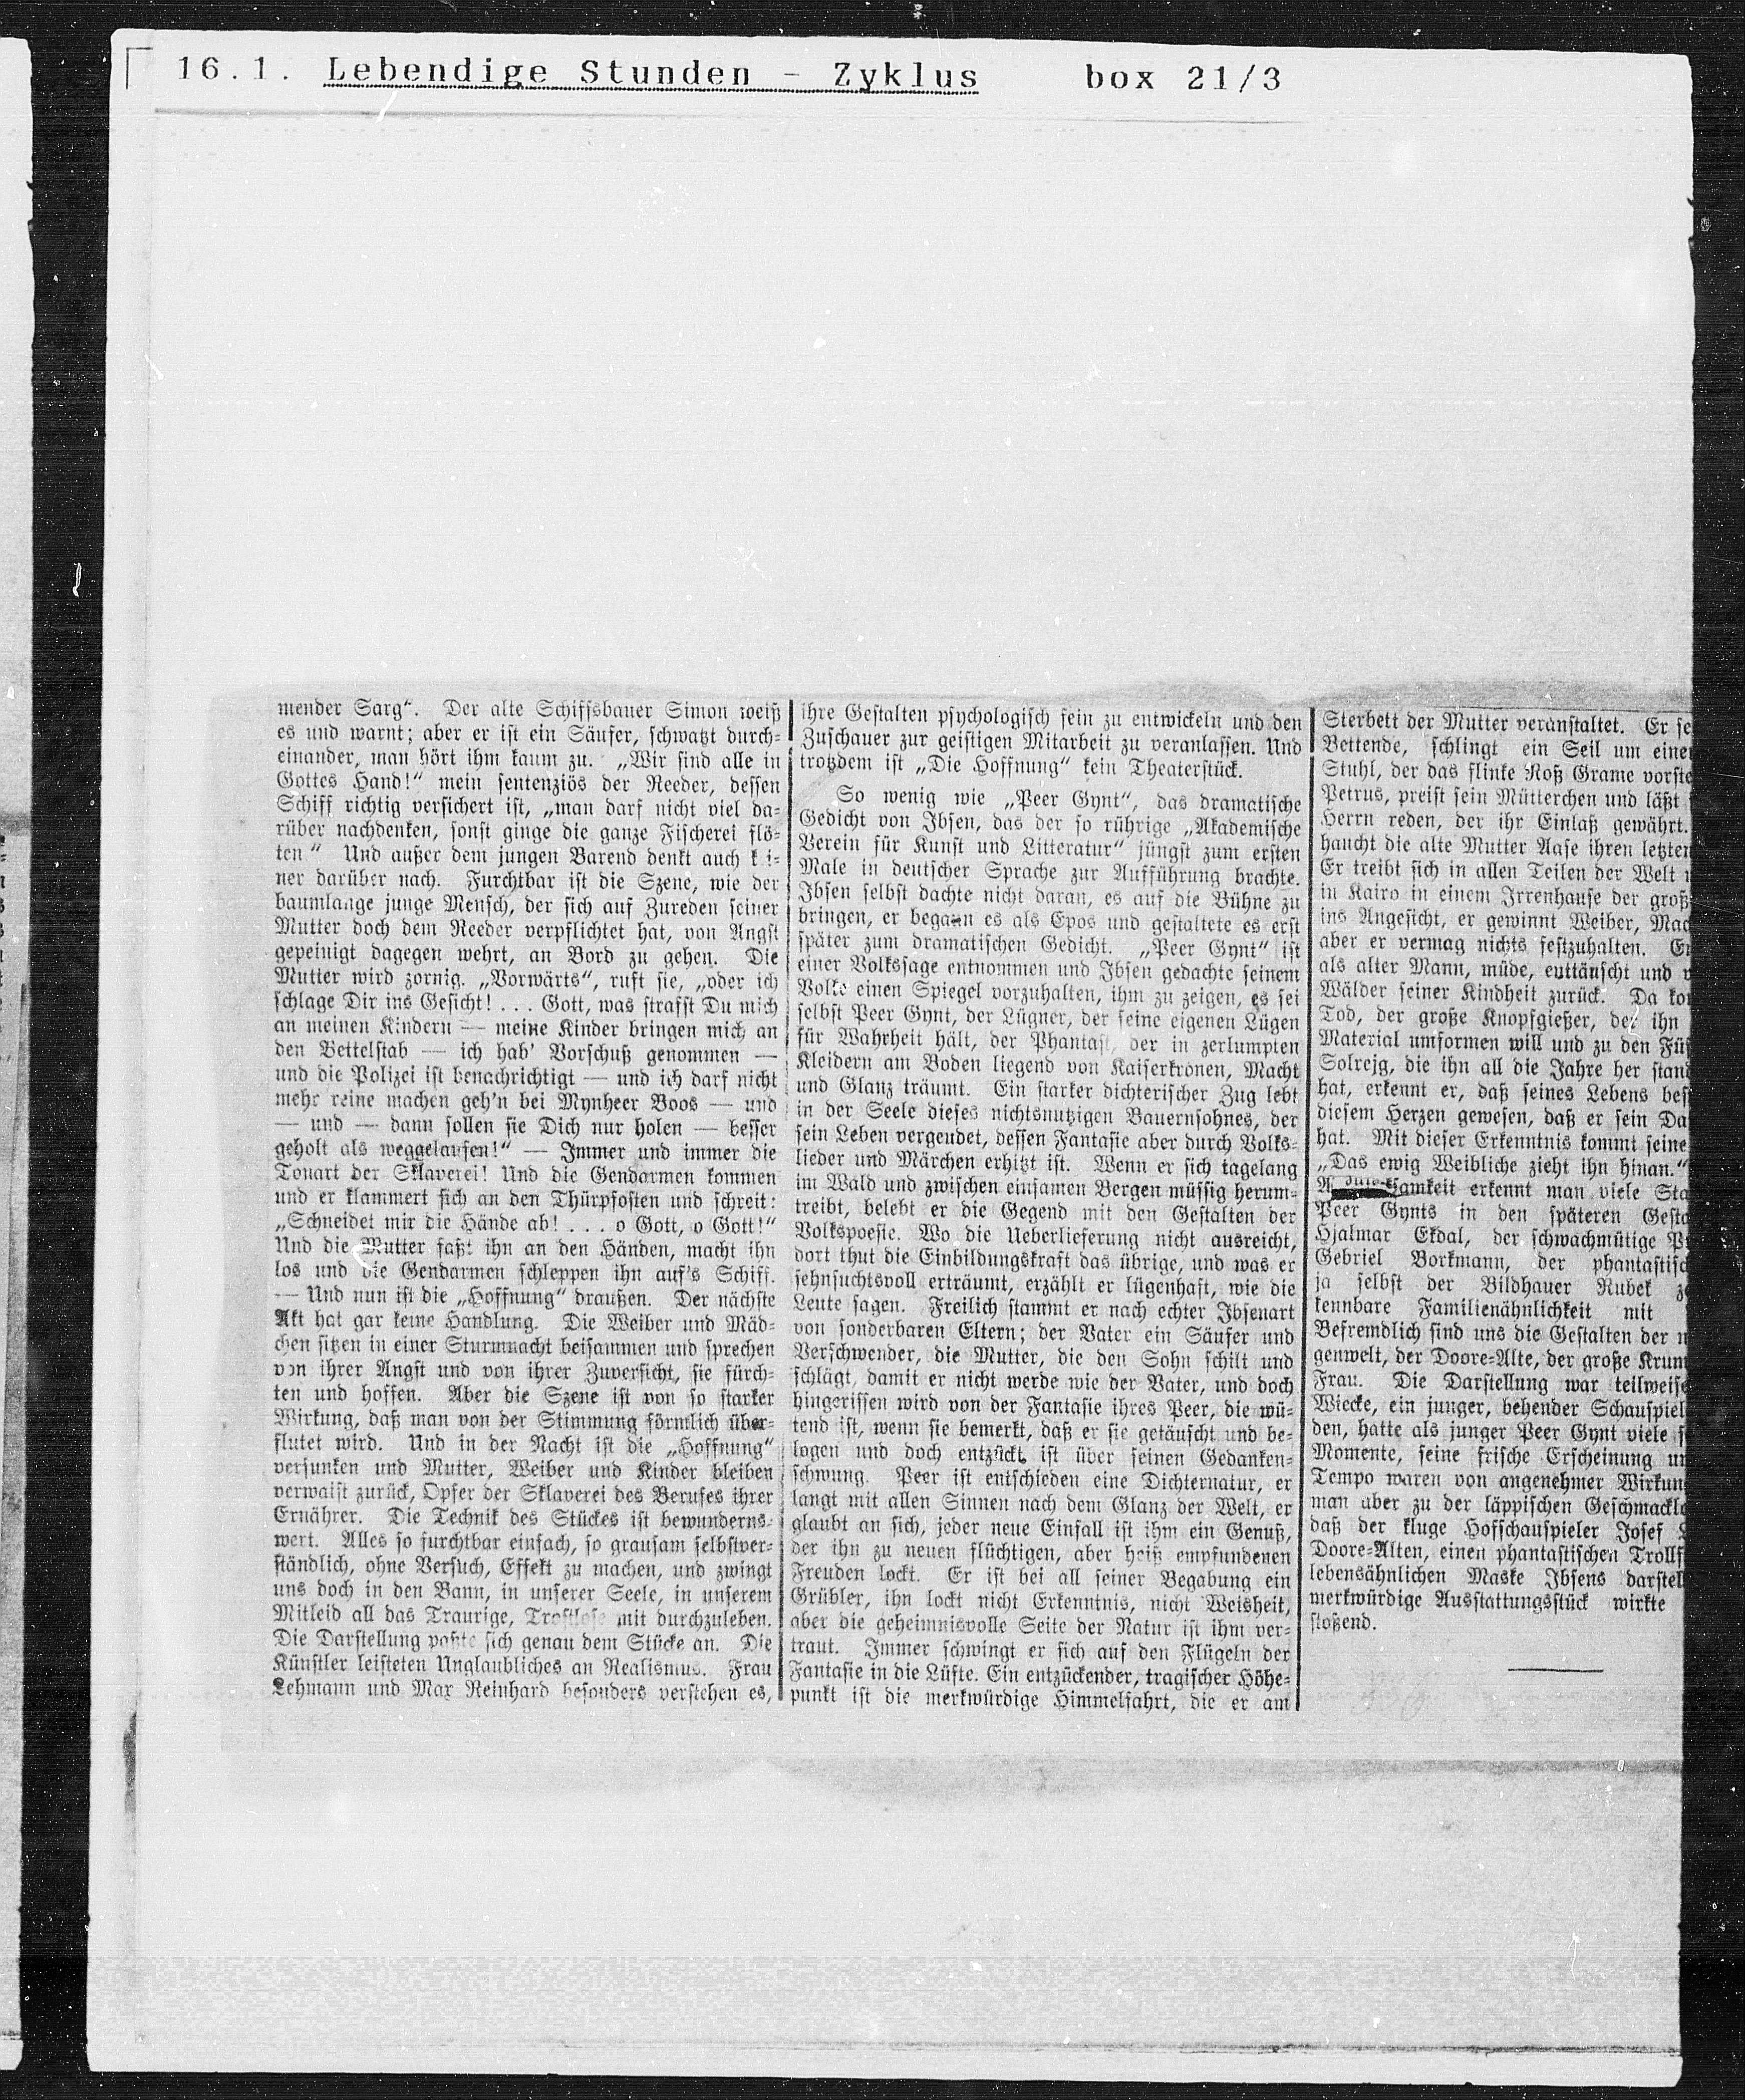 16.1. Lebendige Stunden - Zyklus box 21/3
mender Sarg“. Der alte Schiffsbauer Simon weiß
es und warnt; aber er ist ein Säufer, schwatzt durch-
einander, man hört ihm kaum zu. „Wir sind alle in
Gottes Hand!“ mein sentenziös der Reeder, dessen
Schiff richtig versichert ist, „man darf nicht viel da-
rüber nachdenken, sonst ginge die ganze Fischerei flö-
ten.“ Und außer dem jungen Barend denkt auch k i-
ner darüber nach. Furchtbar ist die Szene, wie der
baumlange junge Mensch, der sich auf Zureden seiner
Mutter doch dem Reeder verpflichtet hat, von Angst
gepeinigt dagegen wehrt, an Bord zu gehen. Die
Mutter wird zornig. „Vorwärts“, ruft sie, „oder ich
schlage Dir ins Gesicht! . . . Gott, was strafst Du mich
an meinen Kindern — meine Kinder bringen mich an
den Bettelstab — ich hab' Vorschuß genommen —
und die Polizei ist benachrichtigt — und ich darf nicht
mehr reine machen geh'n bei Mynheer Boos — und
— und — dann sollen sie Dich nur holen — besser
geholt als weggelaufen!“ — Immer und immer die
Tonart der Sklaverei! Und die Gendarmen kommen
und er klammert sich an den Thürpfosten und schreit:
„Schneidet mir die Hände ab! . . . o Gott, o Gott!“
Und die Mutter faßt ihn an den Händen, macht ihn
los und die Gendarmen schleppen ihn auf's Schiff.
— Und nun ist die „Hoffnung“ draußen. Der nächste
Akt hat gar keine Handlung. Die Weiber und Mäd-
chen sitzen in einer Sturmnacht beisammen und sprechen
von ihrer Angst und von ihrer Zuversicht, sie fürch-
ten und hoffen. Aber die Szene ist von so starker
Wirkung, daß man von der Stimmung förmlich über-
flutet wird. Und in der Nacht ist die „Hoffnung“
versunken und Mutter, Weiber und Kinder bleiben
verwaist zurück, Opfer der Sklaverei des Berufes ihrer
Ernährer. Die Technik des Stückes ist bewunderns-
wert. Alles so furchtbar einfach, so grausam selbstver-
ständlich, ohne Versuch, Effekt zu machen, und zwingt
uns doch in den Bann, in unserer Seele, in unserem
Mitleid all das Traurige, Trostlose mit durchzuleben.
Die Darstellung paßte sich genau dem Stücke an. Die
Künstler leisteten Unglaubliches an Realismus. Frau
Lehmann und Max Reinhard besonders verstehen es,
ihre Gestalten psychologisch fein zu entwickeln und den
Zuschauer zur geistigen Mitarbeit zu veranlassen. Und
trotzdem ist „Die Hoffnung“ kein Theaterstück.
So wenig wie „Peer Gynt“, das dramatische
Gedicht von Ibsen, das der so rührige „Akademische
Verein für Kunst und Litteratur“ jüngst zum ersten
Male in deutscher Sprache zur Aufführung brachte.
Ibsen selbst dachte nicht daran, es auf die Bühne zu
bringen, er begann es als Epos und gestaltete es erst
später zum dramatischen Gedicht. „Peer Gynt“ ist
einer Volkssage entnommen und Ibsen gedachte seinem
Volke einen Spiegel vorzuhalten, ihm zu zeigen, es sei
selbst Peer Gynt, der Lügner, der seine eigenen Lügen
für Wahrheit hält, der Phantast, der in zerlumpten
Kleidern am Boden liegend von Kaiserkronen, Macht
und Glanz träumt. Ein starker dichterischer Zug lebt
in der Seele dieses nichtsnutzigen Bauernsohnes, der
sein Leben vergeudet, dessen Fantasie aber durch Volks-
lieder und Märchen erhitzt ist. Wenn er sich tagelang
im Wald und zwischen einsamen Bergen müssig herum-
treibt, belebt er die Gegend mit den Gestalten der
Volkspoesie. Wo die Ueberlieferung nicht ausreicht,
dort thut die Einbildungskraft das übrige, und was er
sehnsuchtsvoll erträumt, erzählt er lügenhaft, wie die
Leute sagen. Freilich stammt er nach echter Ibsenart
von sonderbaren Eltern; der Vater ein Säufer und
Verschwender, die Mutter, die den Sohn schilt und
schlägt, damit er nicht werde wie der Vater, und doch
hingerissen wird von der Fantasie ihres Peer, die wü-
tend ist, wenn sie bemerkt, daß er sie getäuscht und be-
logen und doch entzückt ist über seinen Gedanken-
schwung. Peer ist entschieden eine Dichternatur, er
langt mit allen Sinnen nach dem Glanz der Welt, er
glaubt an sich, jeder neue Einfall ist ihm ein Genuß,
der ihn zu neuen flüchtigen, aber heiß empfundenen
Freuden lockt. Er ist bei all seiner Begabung ein
Grübler, ihn lockt nicht Erkenntnis, nicht Weisheit,
aber die geheimnisvolle Seite der Natur ist ihm ver-
traut. Immer schwingt er sich auf den Flügeln der
Fantasie in die Lüfte. Ein entzückender, tragischer Höhe-
punkt ist die merkwürdige Himmelfahrt, die er am
Sterbett der Mutter veranstaltet. Er se
Bettende, schlingt ein Seil um eine
Stuhl, der das flinke Roß Grame vorste
Petrus, preist sein Mütterchen und läßt
Herrn reden, der ihr Einlaß gewährt.
haucht die alte Mutter Aase ihren letzten
Er treibt sich in allen Teilen der Welt
in Kairo in einem Irrenhause der groß
ins Angesicht, er gewinnt Weiber, Mac
aber er vermag nichts festzuhalten. E
als alter Mann, müde, enttäuscht und
Wälder seiner Kindheit zurück. Da ko
Tod, der große Knopfgießer, der ihn
Material umformen will und zu den Fü
Solrejg, die ihn all die Jahre her stan
hat, erkennt er, daß seines Lebens bes
diesem Herzen gewesen, daß er sein Da
hat. Mit dieser Erkenntnis kommt seine
„Das ewig Weibliche zieht ihn hinan.“
samkeit erkennt man viele Sta
Peer Gynts in den späteren Gesta
Hjalmar Ekdal, der schwachmütige P
Gebriel Borkmann, der phantastisc
ja selbst der Bildhauer Rubek z
kennbare Familienähnlichkeit mit
Befremdlich sind uns die Gestalten der
genwelt, der Doore-Alte, der große Krum
Frau. Die Darstellung war teilweise
Wiecke, ein junger, behender Schauspiel
den, hatte als junger Peer Gynt viele
Momente, seine frische Erscheinung un
Tempo waren von angenehmer Wirkun
man aber zu der läppischen Geschmacklo
daß der kluge Hofschauspieler Josef
Doore-Alten, einen phantastischen Trollf
lebensähnlichen Maske Ibsens darstel
merkwürdige Ausstattungsstück wirkte
stoßend.